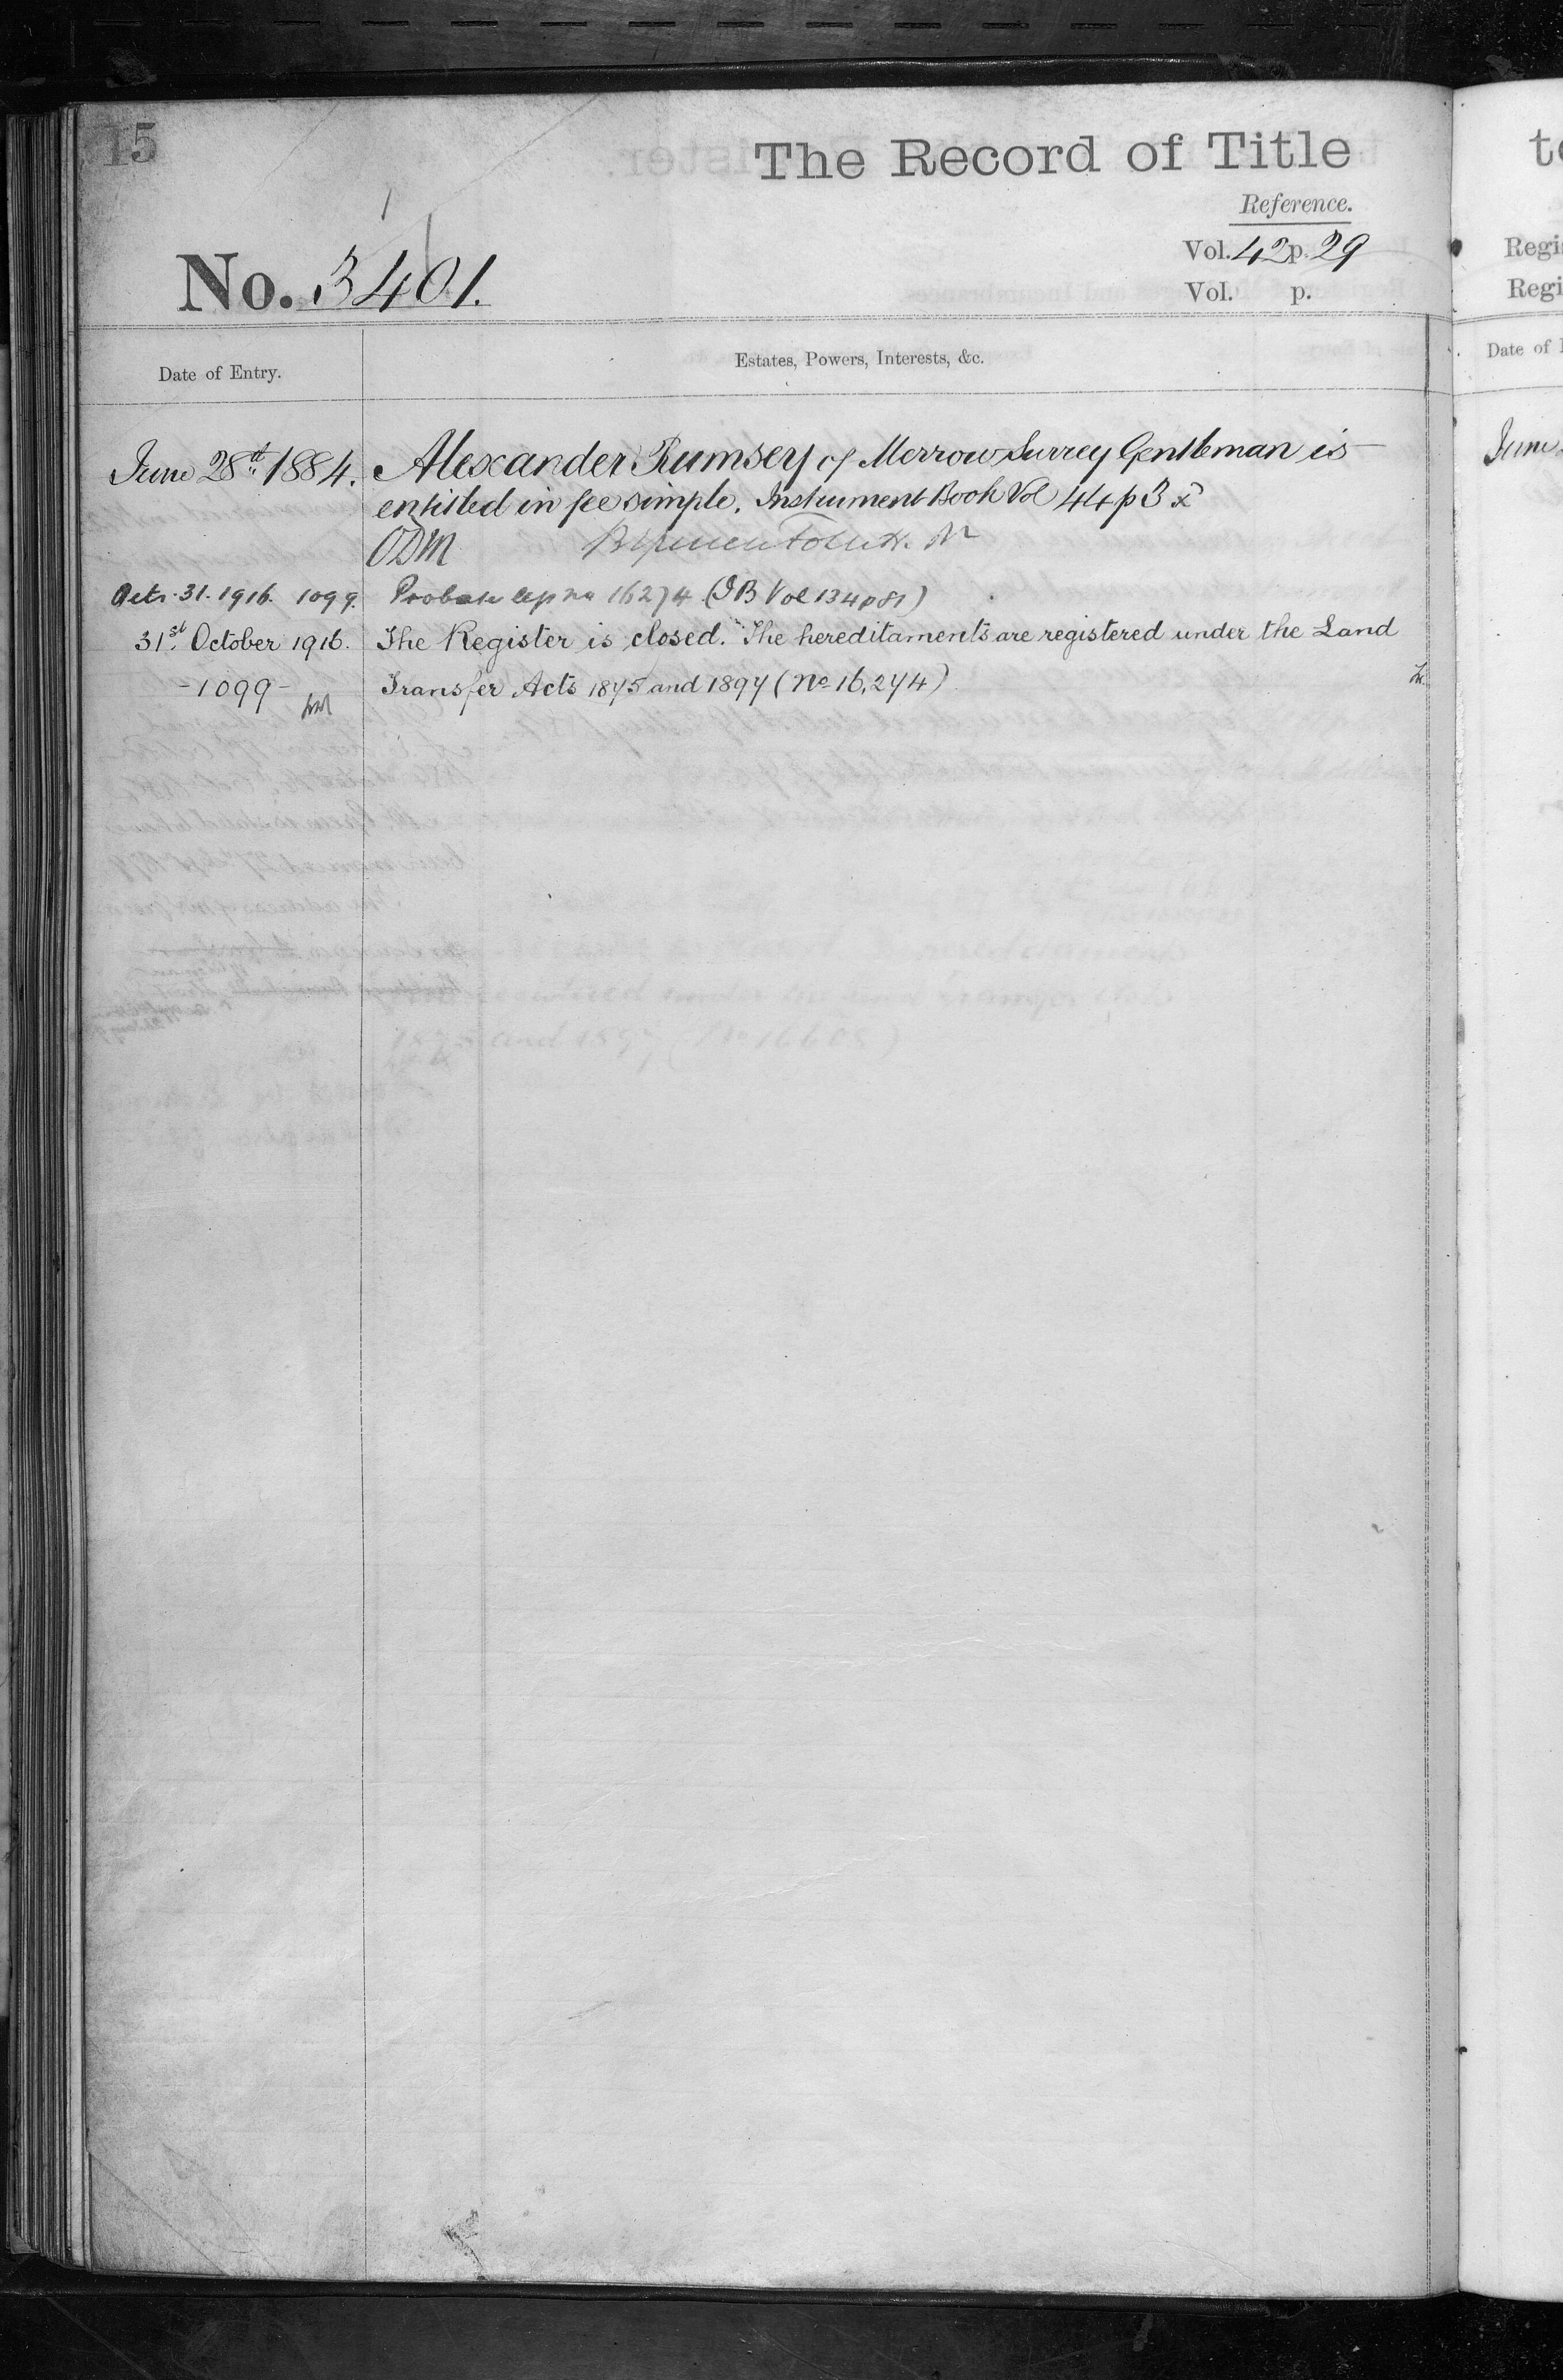 15
The Record of Title
Reference.
Vol. 42 p. 29
No. 3401.
Vol. p.
Date of Entry.
Estates, Powers, Interests, &c.
June 28th 1884.
Alexander Rumsey of Merrow Surrey Gentleman is
entitled in fee simple. Instrument Book Vol 44 p 3
ODM
Octr. 31. 1916. 1099.
Probate 16274 (IB Vol 134 p 81)
31st October 1916.
The Register is closed. The hereditaments are registered under the Land
-1099-
Transfer Acts 1875 and 1897 (No 16,274)
Regi
Regi
Date of
June